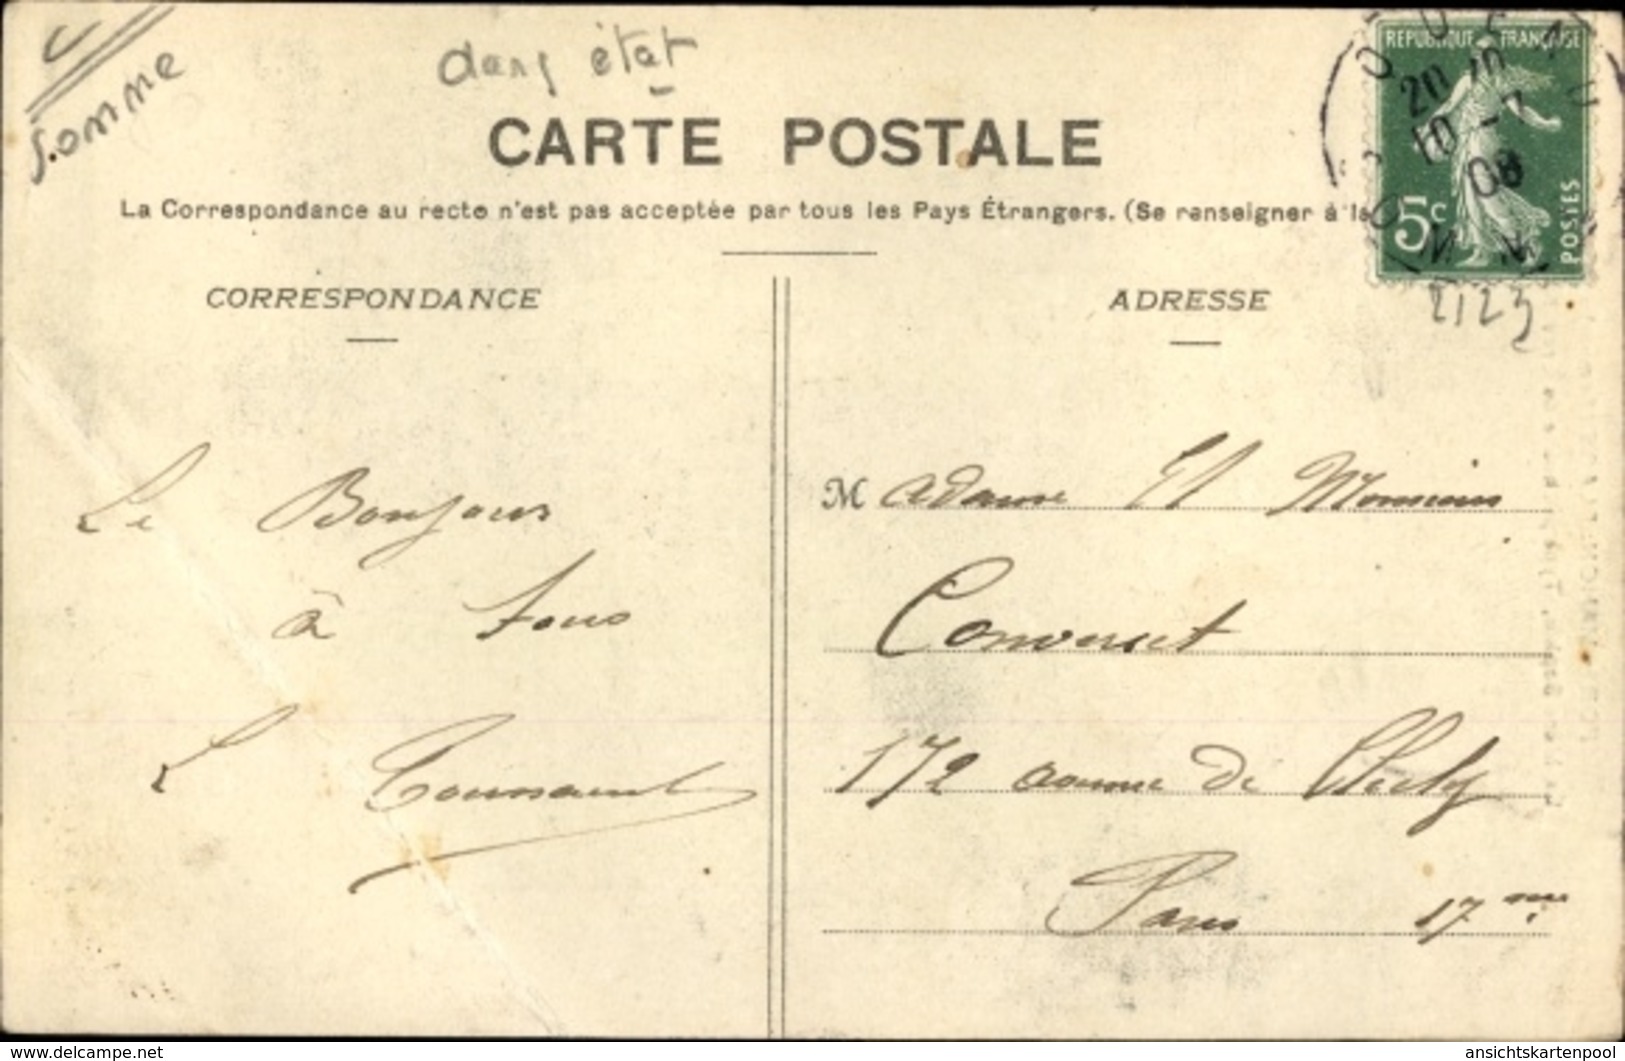 Somme
dans état
CARTE POSTALE
La Correspondance au recto n'est pas acceptée par tous les Pays Étrangers. (Se renseigner à la
REPUBLIQUE FRANÇAISE
5c
POSTES
20 10
10 -7
08
2123
CORRESPONDANCE
ADRESSE
Le Bonjour
à tous
L Toussaint
Madame Et Monsieur
Converset
172 avenue de Clichy
Paris 17me
www.delcampe.net
ansichtskartenpool